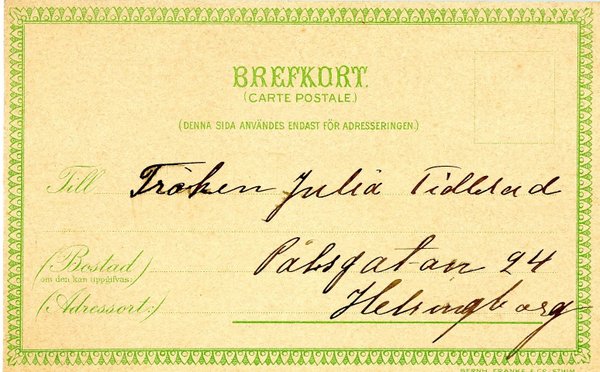 BREFKORT.
(CARTE POSTALE.)
(DENNA SIDA ANVÄNDES ENDAST FÖR ADRESSERINGEN.)
Till Fröken Julia Tidblad
(Bostad) Pålsgatan 24
om den kan uppgifvas:
(Adressort:) Helsingborg